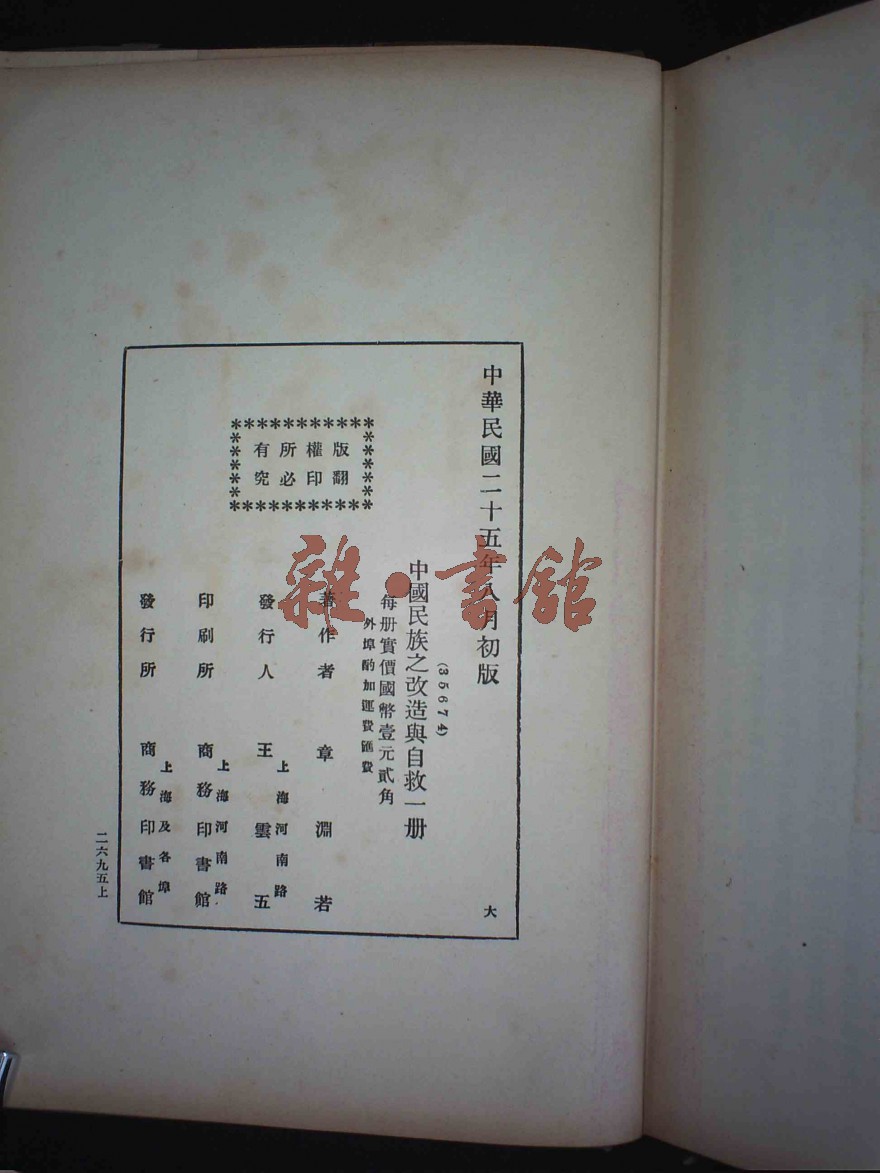 中華民國二十五年八月初版
大
(35674)
中國民族之改造與自救一册
每册實價國幣壹元貳角
外埠酌加運費匯費
版權所有
翻印必究
著作者 章淵若
發行人 王雲五
上海河南路
印刷所 商務印書館
上海河南路
發行所 商務印書館
上海及各埠
二六九五上
雜·書館